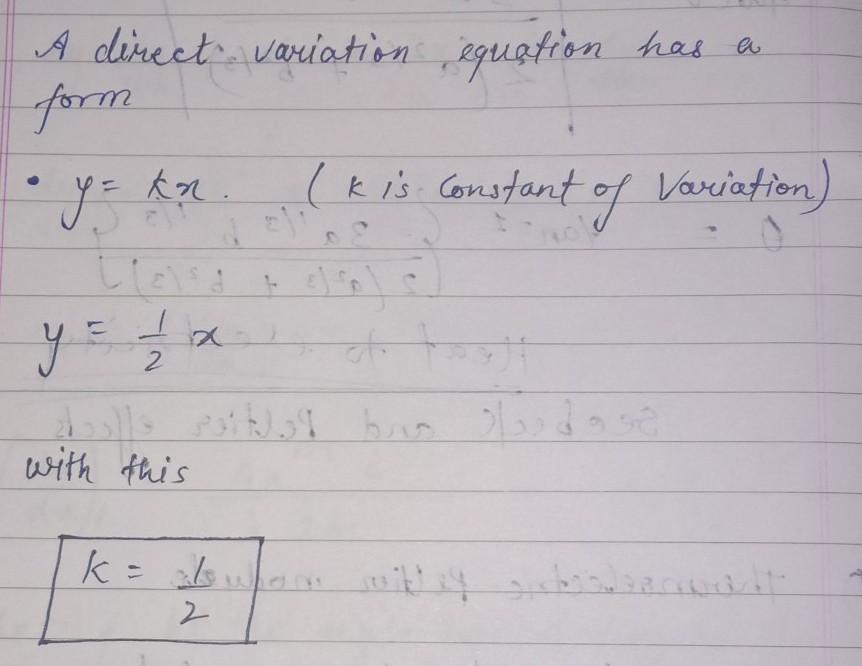 A direct variation equation has a
form
• y = kx. ( k is Constant of Variation)
y = 1/2 x
with this
k = 1/2